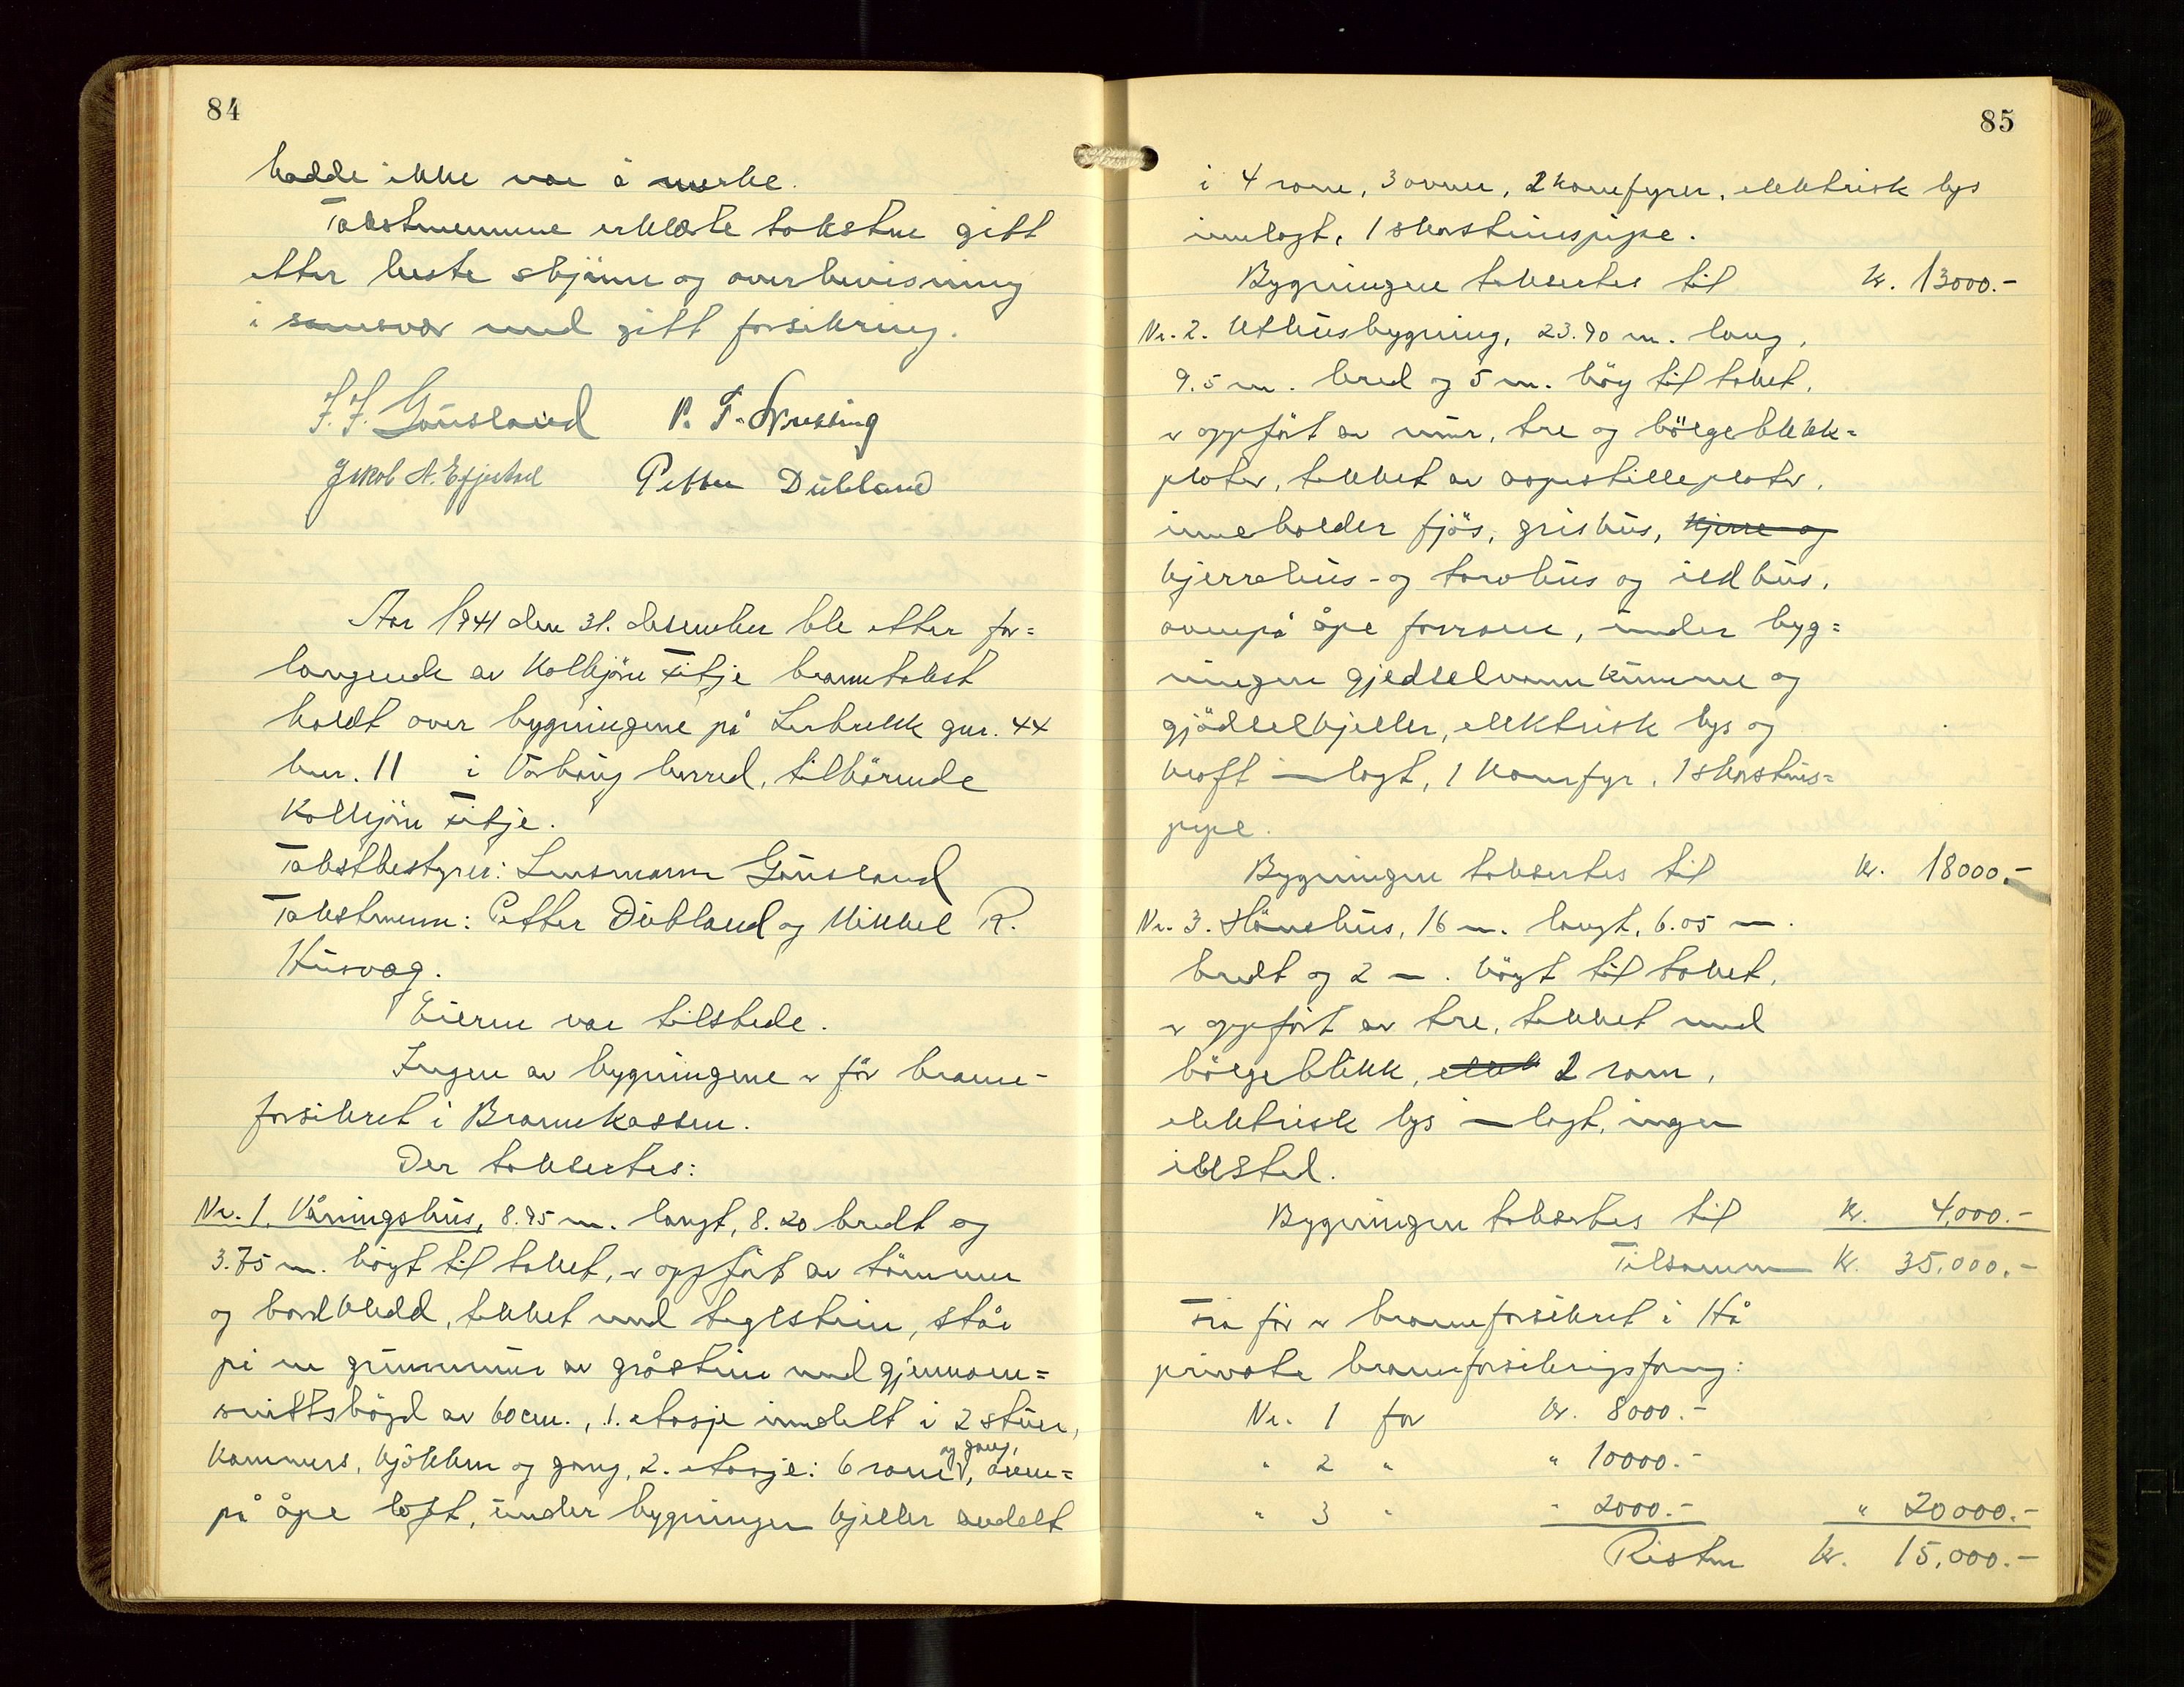 84
hadde ikke noe å merke.
Takstmennene erklærte takstene gitt
etter beste skjönn og overbevisning
i samsvar med gitt forsikring.
J. J. Gausland P. T.
Jakob A. Petter Dubland
Aar 1941 den 31. desember ble etter for=
langende av Kolbjörn Fitje branntakst
holdt over bygningene på Lerbrekk gnr. 44
bnr. 11 i Varhaug herred, tilhörende
Kolbjörn Fitje.
Takstbestyrer: Lensmann Gausland
Takstmenn: Petter Dubland og Mikkel R.
Husvæg.
Eieren var tilstede.
Ingen av bygningene er för brann-
forsikret i Brannkassen.
Der takseertes:
Nr. 1. Våningshus, 8.95 m. langt, 8.20 bredt og
3.75 m. högt til taket, er oppfört av tömmer
og bordkledd, tekket med teglstein, står
på en grunnmur av gråstein med gjennom=
snittshögd av 60 cm., 1. etasje inndelt i 2 stuer,
kammers, kjökken og gang, 2. etasje: 6 rom og gang, oven=
på åpe loft, under bygningen kjeller avdelt
85
i 4 rom, 3 ovner, 2 komfyrer, elektrisk lys
innlagt, 1 skorsteinspipe.
Bygningen takseertes til kr. 13000.-
Nr. 2. Uthusbygning, 23.90 m. lang,
9.5 m. bred og 5 m. höy til taket,
er oppfört av mur, tre og bölgeblikk=
plater, tekket av plater,
inneholder fjös, grishus, kjerre og
kjerrehus- og torvhus og eldhus,
ovenpå åpe forrom, under byg=
ningen gjedselvannkumme og
gjödselkjeller, elektrisk lys og
kraft innlagt, 1 komfyr, 1 skorsteins=
pipe.
Bygningen takseertes til kr. 18000.-
Nr. 3. Hönsehus, 16 m. langt, 6.05 m.
bredt og 2 m. högt til taket,
er oppfört av tre, tekket med
bölgeblikk, elek 2 rom,
elektrisk lys innlagt, ingen
ildsted.
Bygningen takseertes til kr. 4,000.-
Tilsammen kr. 35,000.-
Fra för er brannforsikret i Hå
private brannforsikringsforeng:
Nr. 1 for kr. 8000.-
" 2 " " 10000.-
" 3 " " 2000.- " 20000.-
Resten kr. 15,000.-